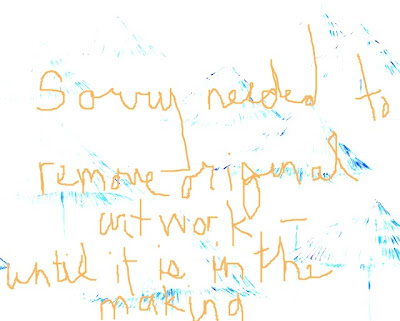 Sorry needed to
remove original
artwork -
until it is in the
making